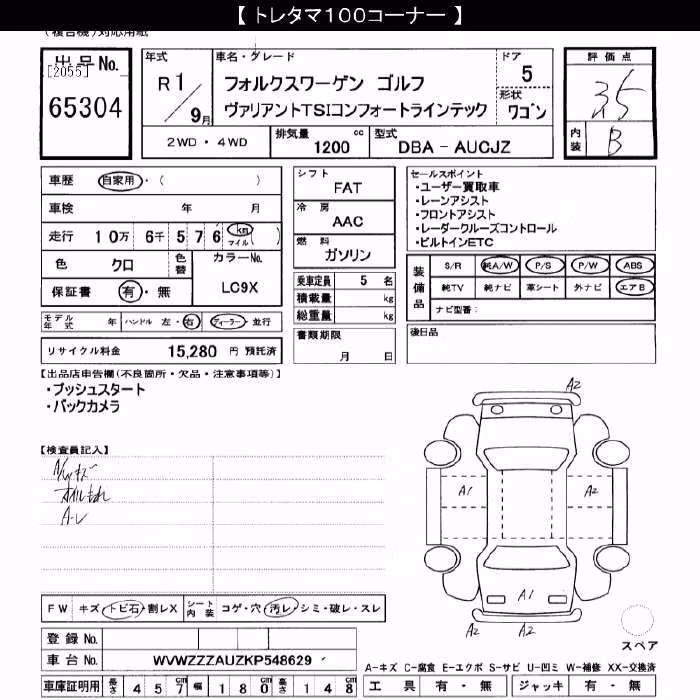 【 トレタマ100コーナー 】
(複合機)対応用紙
出品No.
[2055]
65304
年式
R 1 / 9月
車名・グレード
フォルクスワーゲン ゴルフ
ヴァリアントTSIコンフォートラインテック
ドア
5
形状
ワゴン
評価点
3.5
内装
B
2WD・4WD
排気量 cc
1200
型式
DBA - AUCJZ
車歴 自家用・( )
車検 年 月
走行 10万 6千 5 7 6 km マイル ( )
色 クロ
色替
カラーNo.
LC9X
保証書 有・無
モデル年式 年
ハンドル 左・右
ディーラー・並行
リサイクル料金 15,280 円 預託済
シフト
FAT
冷房
AAC
燃料
ガソリン
乗車定員 5 名
積載量 kg
総重量 kg
書類期限
月 日
セールスポイント
・ユーザー買取車
・レーンアシスト
・フロントアシスト
・レーダークルーズコントロール
・ビルトインETC
装備品
S/R 純A/W P/S P/W ABS
純TV 純ナビ 革シート 外ナビ エアB
ナビ型番:
後日品
【出品店申告欄(不良箇所・欠品・注意事項等)】
・プッシュスタート
・バックカメラ
【検査員記入】
A-レ
A2
A1
A2
A1
A2
A2
スペア
FW キズ・トビ石・割レX
シート内装 コゲ・穴・汚レ・シミ・破レ・スレ
登録 No.
車台 No. WVWZZZAUZKP548629
車庫証明用 長さ 457cm 幅 180cm 高さ 148cm
A-キズ C-腐食 E-エクボ S-サビ U-凹ミ W-補修 XX-交換済
工具 有・無 ジャッキ 有・無